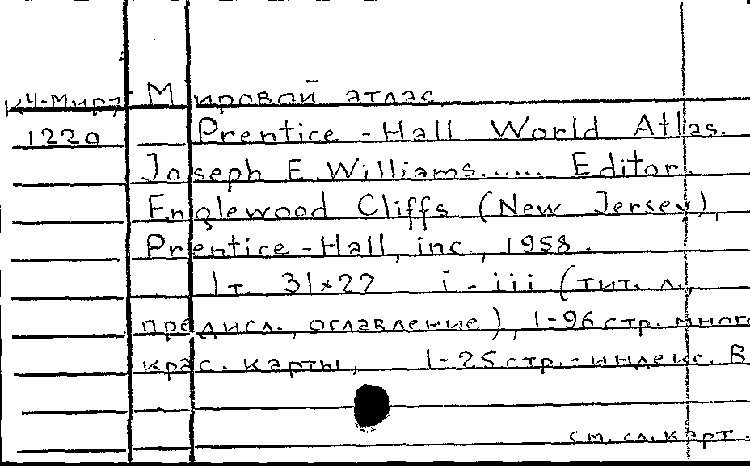 КЧ-Мир7 Мировой атлас
1220 Prentice-Hall World Atlas.
Joseph E. Williams...... Editor.
Englewood Cliffs (New Jersey),
Prentice-Hall, inc., 1958.
1т. 31×27 i-iii (тит. л.,
предисл., оглавление), 1-96 стр. мног
крас. карты, 1-25 стр.-индекс. В
см. сл. карт.